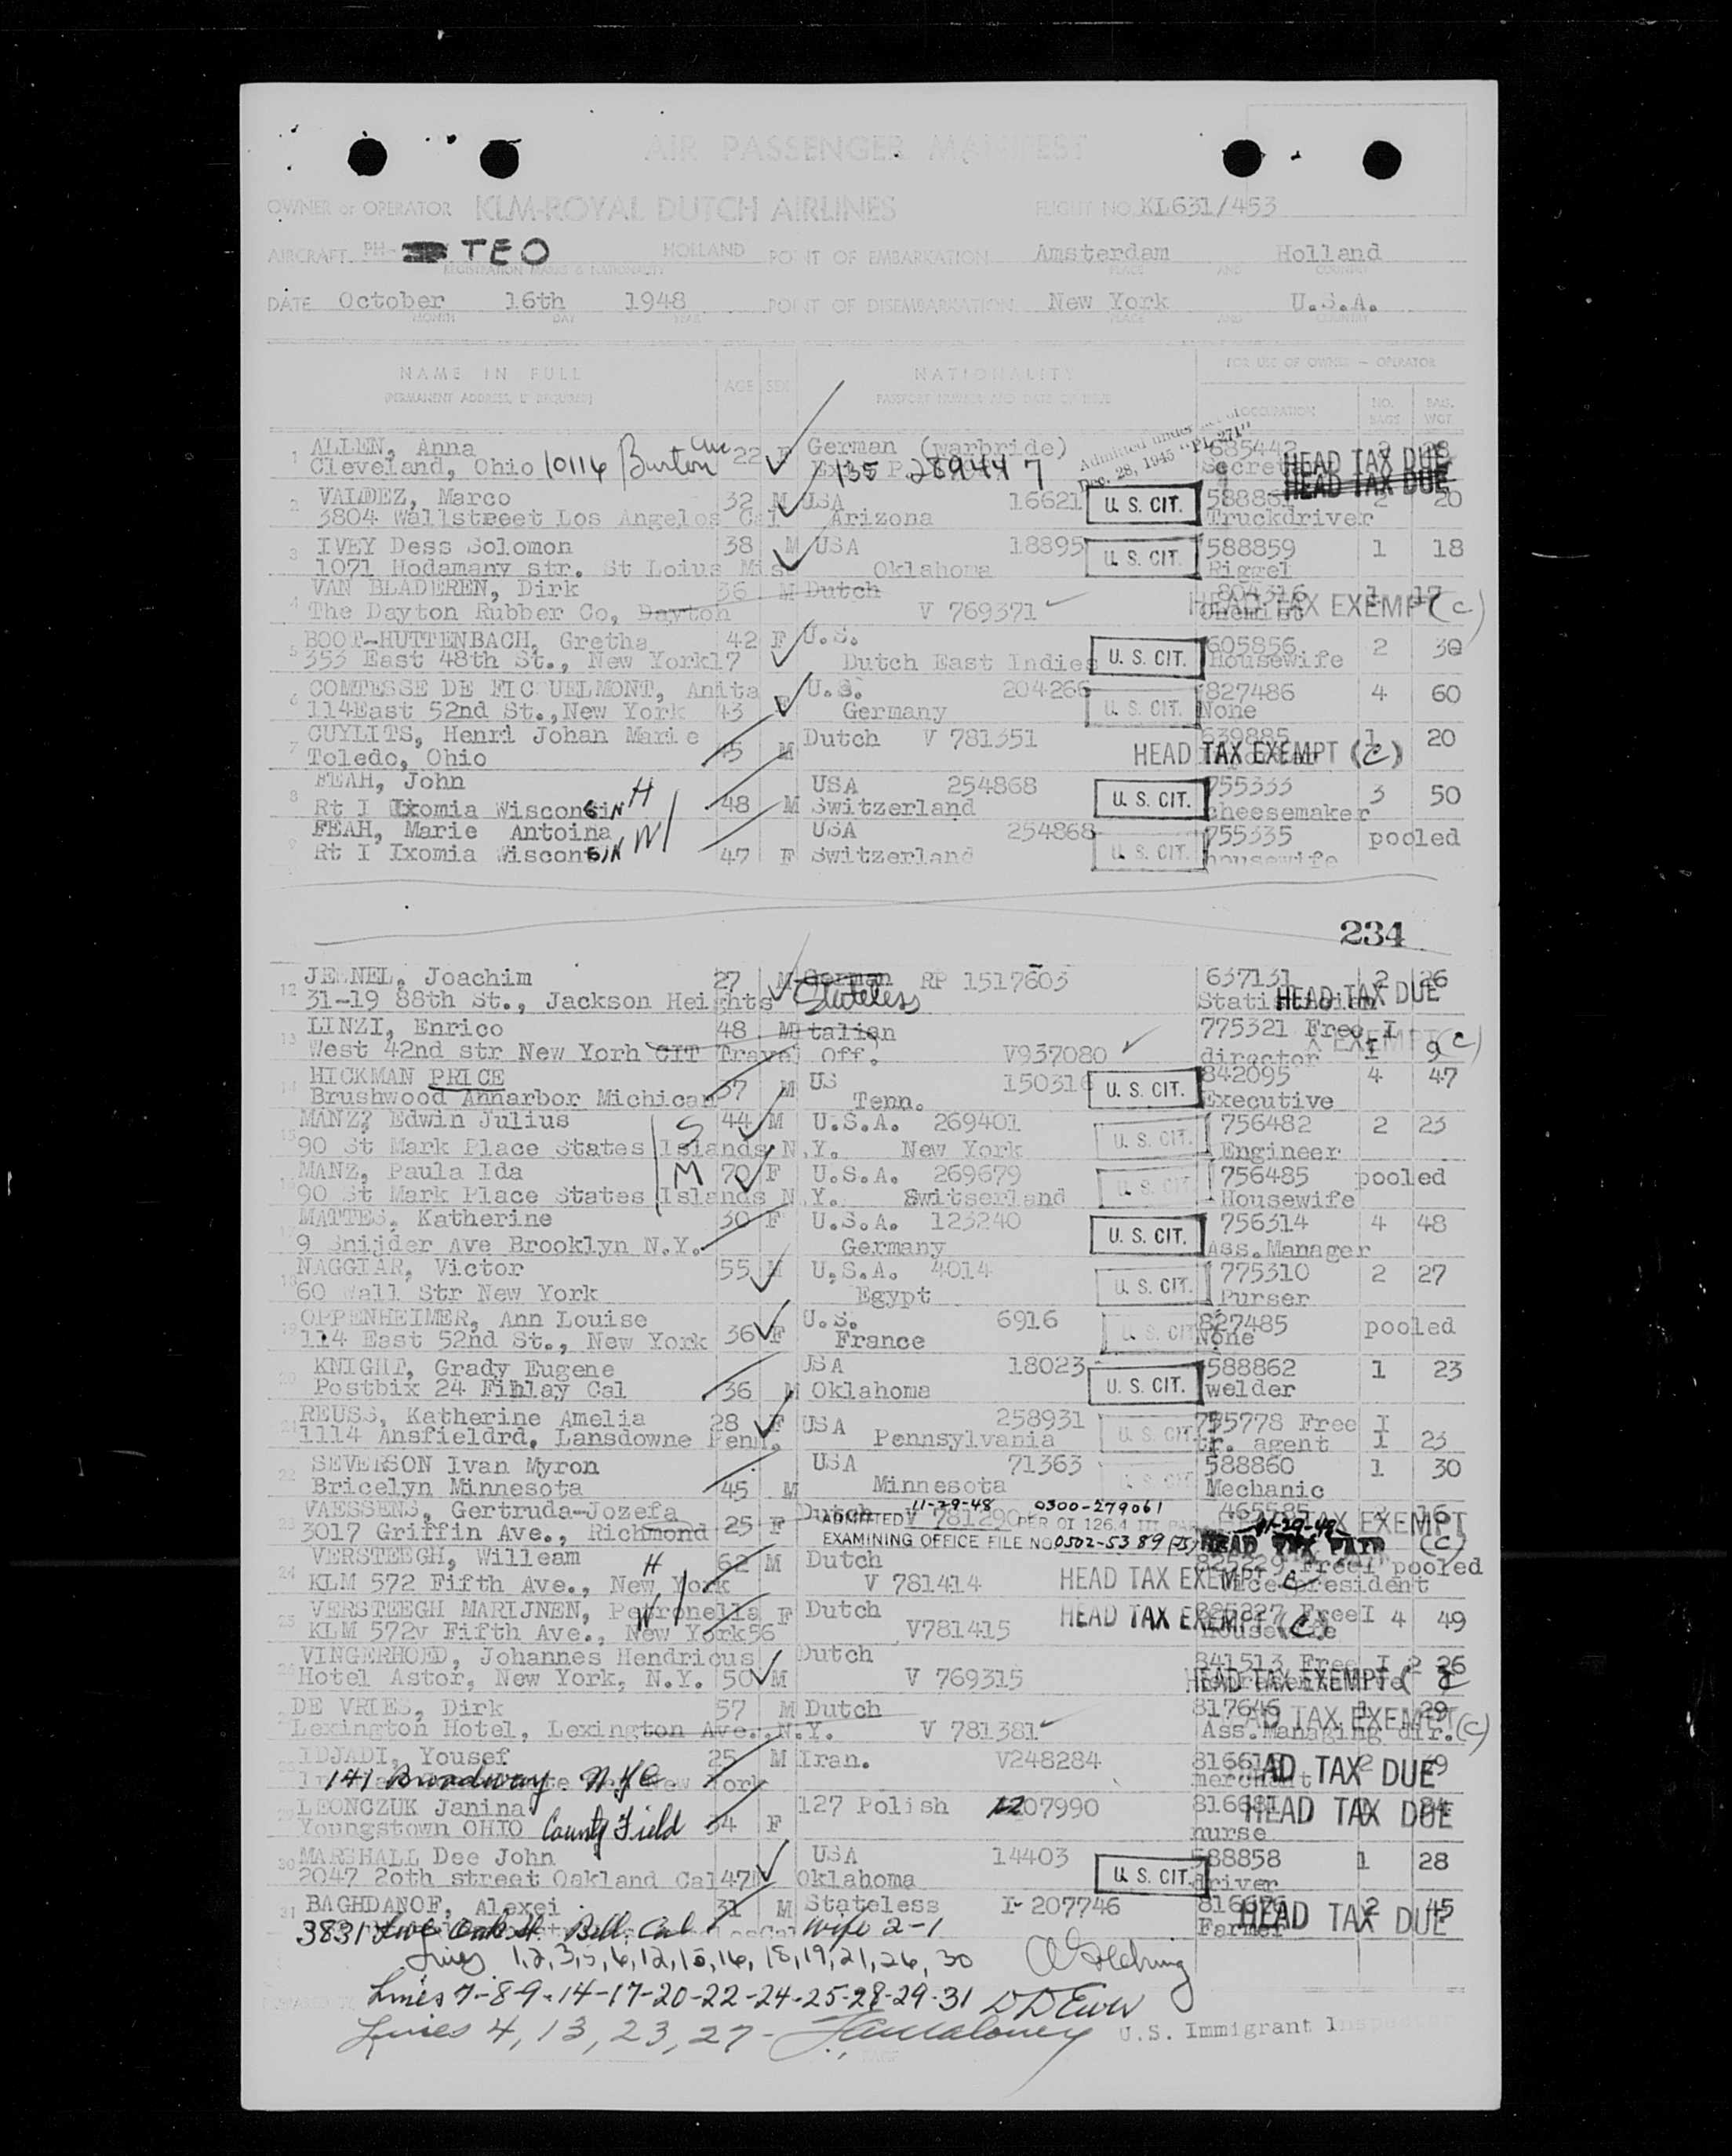 AIR PASSENGER MANIFEST
OWNER or OPERATOR KLM-ROYAL DUTCH AIRLINES FLIGHT NO. KL631/453
AIRCRAFT PH- TEO HOLLAND POINT OF EMBARKATION Amsterdam Holland
REGISTRATION MARKS & NATIONALITY PLACE AND COUNTRY
DATE October 16th 1948 POINT OF DISEMBARKATION New York U.S.A.
MONTH DAY YEAR PLACE AND COUNTRY
NAME IN FULL AGE SEX NATIONALITY FOR USE OF OWNER - OPERATOR
(PERMANENT ADDRESS, IF REQUIRED) PASSPORT NUMBER AND DATE OF ISSUE OCCUPATION NO. BAGS BAG. WGT
1 ALLEN, Anna 22 F German (warbride) 685442 2 28
Cleveland, Ohio 10114 Burton Ave 135 289447 Admitted under Dec. 28, 1945 "PL 271" HEAD TAX DUE
HEAD TAX DUE
2 VALDEZ, Marco 32 M USA 16621 U. S. CIT. 2 20
3804 Wallstreet Los Angelos Cal Arizona Truckdriver
3 IVEY Dess Solomon 38 M USA 18895 U. S. CIT. 588859 1 18
1071 Hodamany str. St Loius Mis. Oklahoma Riggel
4 VAN BLADEREN, Dirk 36 M Dutch 804316 1 17
The Dayton Rubber Co, Dayton V 769371 Chemist HEAD TAX EXEMP (c)
5 BOOT-HUTTENBACH, Gretha 42 F U.S. 605856 2 30
353 East 48th St., New York17 Dutch East Indies U. S. CIT. Housewife
6 COMTESSE DE FICQUELMONT, Anita F U.S. 204266 827486 4 60
114East 52nd St.,New York 43 Germany U. S. CIT. None
7 CUYLITS, Henri Johan Marie M Dutch V 781351 639885 1 20
Toledo, Ohio 45 HEAD TAX EXEMPT (c)
8 FEAH, John H USA 254868 755333 3 50
Rt I Ixomia Wisconsin 48 M Switzerland U. S. CIT. cheesemaker
9 FEAH, Marie Antoina W USA 254868 755335 pooled
Rt I Ixomia Wisconsin 47 F Switzerland U. S. CIT. housewife
234
12 JENNEL, Joachim 27 M German RP 1517603 637131 2 26
31-19 88th St., Jackson Heights Stateless HEAD TAX DUE
13 LINZI, Enrico 48 M Italian 775321 Free I
West 42nd str New Yorh CIT Travel Off. V937080 director 1 9 EXEMPT (c)
14 HICKMAN PRICE 37 M US 150316 U. S. CIT. 842095 4 47
Brushwood Annarbor Michican Tenn. Executive
15 MANZ? Edwin Julius S 44 M U.S.A. 269401 756482 2 23
90 St Mark Place States Islands N.Y. New York U. S. CIT. Engineer
16 MANZ, Paula Ida M 70 F U.S.A. 269679 756485 pooled
90 St Mark Place States Islands N.Y. Switserland U. S. CIT Housewife
17 MATTES, Katherine 30 F U.S.A. 123240 756314 4 48
9 Snijder Ave Brooklyn N.Y. Germany U. S. CIT. Ass.Manager
18 NAGGIAR, Victor 55 M U.S.A. 4014 775310 2 27
60 Wall Str New York Egypt U. S. CIT. Purser
19 OPPENHEIMER, Ann Louise 36 F U.S. 6916 827485 pooled
114 East 52nd St., New York France U. S. CIT None
20 KNIGHT, Grady Eugene USA 18023 588862 1 23
Postbix 24 Finlay Cal 36 M Oklahoma U. S. CIT. welder
21 REUSS, Katherine Amelia 28 F USA 258931 755778 Free I
1114 Ansfieldrd, Lansdowne Penn. Pennsylvania U. S. CIT tr. agent 1 23
22 SEVERSON Ivan Myron USA 71363 588860 1 30
Bricelyn Minnesota 45 M Minnesota U. S. CIT Mechanic
23 VAESSENS, Gertruda-Jozefa 25 F Dutch 11-29-48 0300-279061 465585 2 16
3017 Griffin Ave., Richmond ADMITTED V 781290 PER OI 126.4 III TAX EXEMPT (c)
EXAMINING OFFICE FILE NO 0502-5389 HEAD TAX PAID
24 VERSTEEGH, Willeam H 62 M Dutch 825229 Free I pooled
KLM 572 Fifth Ave., New York V 781414 HEAD TAX EXEMPT c Vice President
25 VERSTEEGH MARIJNEN, Petronella W F Dutch HEAD TAX EXEMPT (c) 825227 Free I 4 49
KLM 572v Fifth Ave., New York 56 V781415 Housewife
26 VINGERHOED, Johannes Hendricus Dutch 841513 Free I 2 26
Hotel Astor, New York, N.Y. 50 M V 769315 HEAD TAX EXEMPT (c
DE VRIES, Dirk 57 M Dutch 817646 1 29
Lexington Hotel, Lexington Ave., N.Y. V 781381 Ass.Managing dir. AD TAX EXEMPT (c)
IDJADI, Yousef 25 M Iran. V248284 2
141 Broadway. NYC. New York merchant AD TAX DUE
29 LEONCZUK Janina 34 F 127 Polish 1207990 816681
Youngstown OHIO County Field nurse HEAD TAX DUE
30 MARSHALL Dee John USA 14403 588858 1 28
2047 20th street Oakland Cal 47 M Oklahoma U. S. CIT. driver
31 BAGHDANOF, Alexei 31 M Stateless I- 207746 816676 2 45
3831 Live Oak St. Bell, Cal wife 2-1 Farmer HEAD TAX DUE
Lines 1,2,3,5,6,12,15,16,18,19,21,26,30
Lines 7-8-9-14-17-20-22-24-25-28-29-31
Lines 4, 13, 23, 27 - U.S. Immigrant Inspector